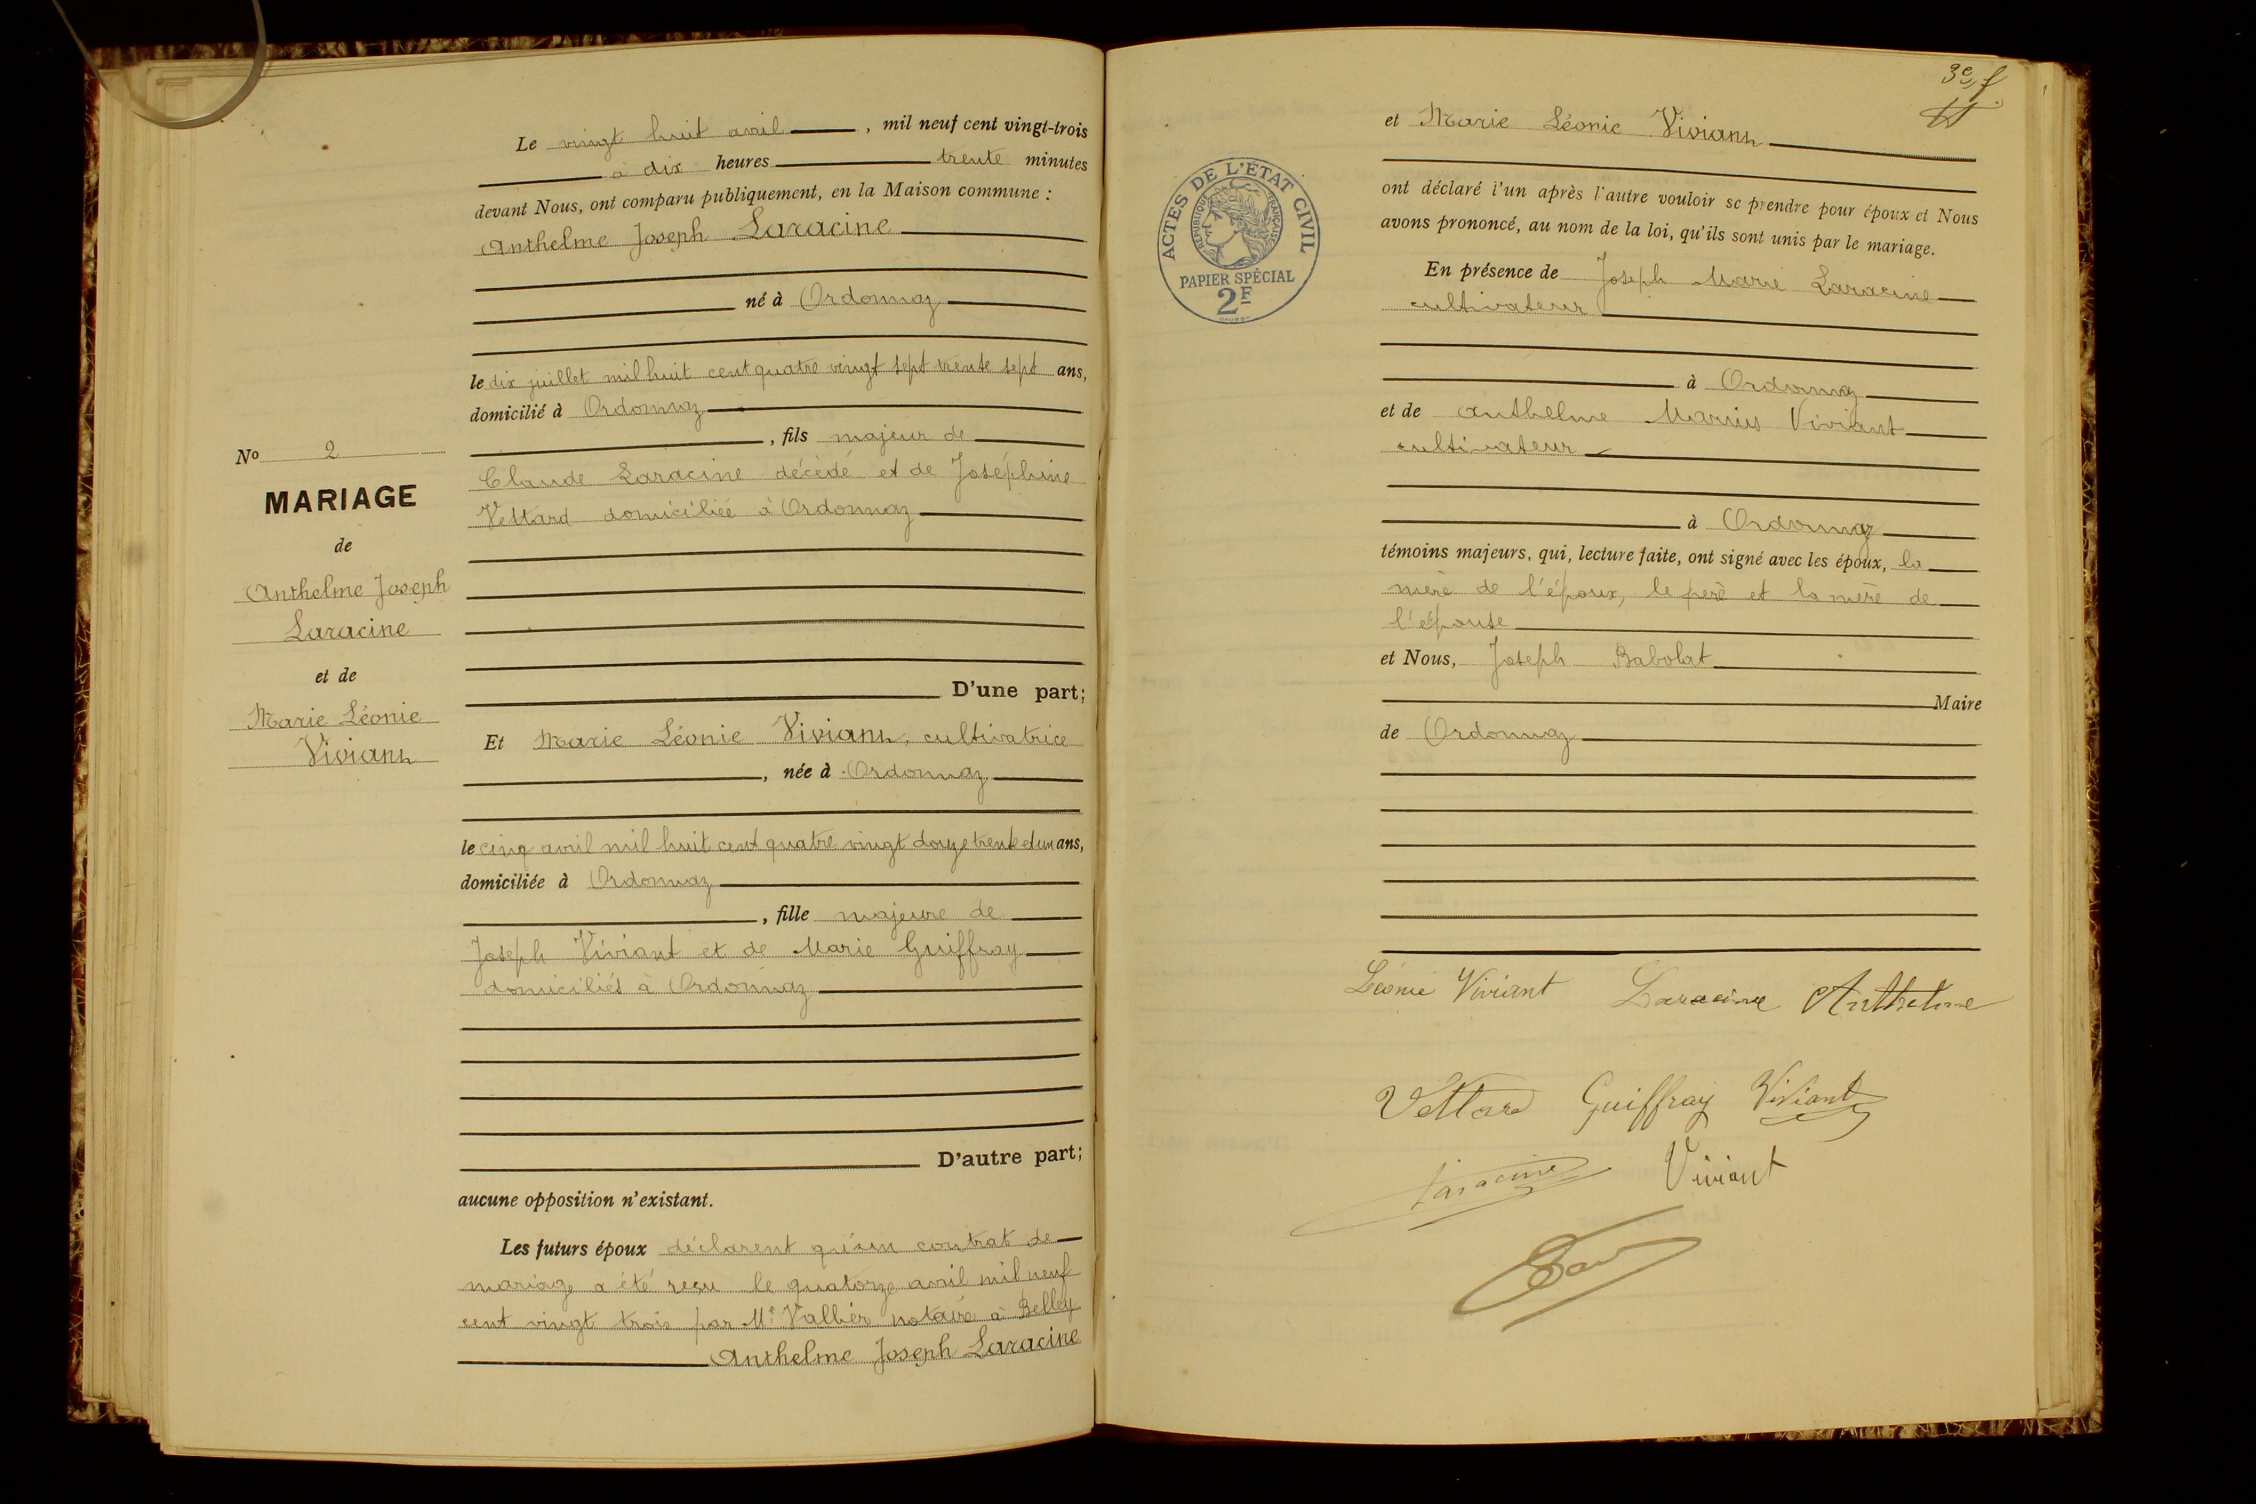 Le vingt huit avril, mil neuf cent vingt-trois
à dix heures trente minutes
devant Nous, ont comparu publiquement, en la Maison commune :
Anthelme Joseph Laracine
né à Ordonnaz
le dix juillet mil huit cent quatre vingt sept trente sept ans,
domicilié à Ordonnaz
, fils majeur de
Claude Laracine décédé et de Joséphine
Vettard domiciliée à Ordonnaz
D'une part;
Et Marie Léonie Viviant, cultivatrice
, née à Ordonnaz
le cinq avril mil huit cent quatre vingt douze trente et un ans,
domiciliée à Ordonnaz
, fille majeure de
Joseph Viviant et de Marie Guiffray
domiciliés à Ordonnaz
D'autre part;
aucune opposition n'existant.
Les futurs époux déclarent qu'un contrat de
mariage a été reçu le quatorze avril mil neuf
cent vingt trois par Me Vallier notaire à Belley
Anthelme Joseph Laracine
No 2
MARIAGE
de
Anthelme Joseph
Laracine
et de
Marie Léonie
Viviant
3e f
et Marie Léonie Viviant
ont déclaré l'un après l'autre vouloir se prendre pour époux et Nous
avons prononcé, au nom de la loi, qu'ils sont unis par le mariage.
En présence de Joseph Marie Laracine
cultivateur
à Ordonnaz
et de Anthelme Marius Viviant
cultivateur
à Ordonnaz
témoins majeurs, qui, lecture faite, ont signé avec les époux, la
mère de l'époux, le père et la mère de
l'épouse
et Nous, Joseph Babolat
Maire
de Ordonnaz
Léonie Viviant Laracine Anthelme
Vettard Guiffray Viviant
Laracine Viviant
ACTES DE L'ÉTAT CIVIL
RÉPUBLIQUE FRANÇAISE
PAPIER SPÉCIAL
2F